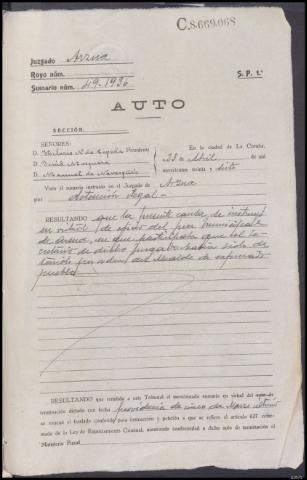 C.8.669.068
Juzgado Arzua
Royo núm.
S. P. 1.ª
Sumario núm. 49-1936
AUTO
SECCIÓN
SEÑORES:
D. Hilario N. de Presidente
D. 
D. Manuel de
En la ciudad de La Coruña,
23 de Abril de mil
novecientos treinta y siete
Visto el sumario instruido en el Juzgado de Arzua
por detención ilegal-
RESULTANDO que la presente causa se instruyó
en virtud de oficio del juez municipal
de en que participaba que el se-
cretario de dicho juzgado había sido de-
tenido por orden del alcalde de
pueblo
RESULTANDO que remitido a este Tribunal el mencionado sumario en virtud del auto de
terminación dictado con fecha providencia de cinco de Marzo último
se evacuó el traslado conferido para instrucción y petición a que se refiere el artículo 627 refor-
mado de la Ley de Enjuiciamiento Criminal, mostrando conformidad a dicho auto de terminación el
Ministerio Fiscal